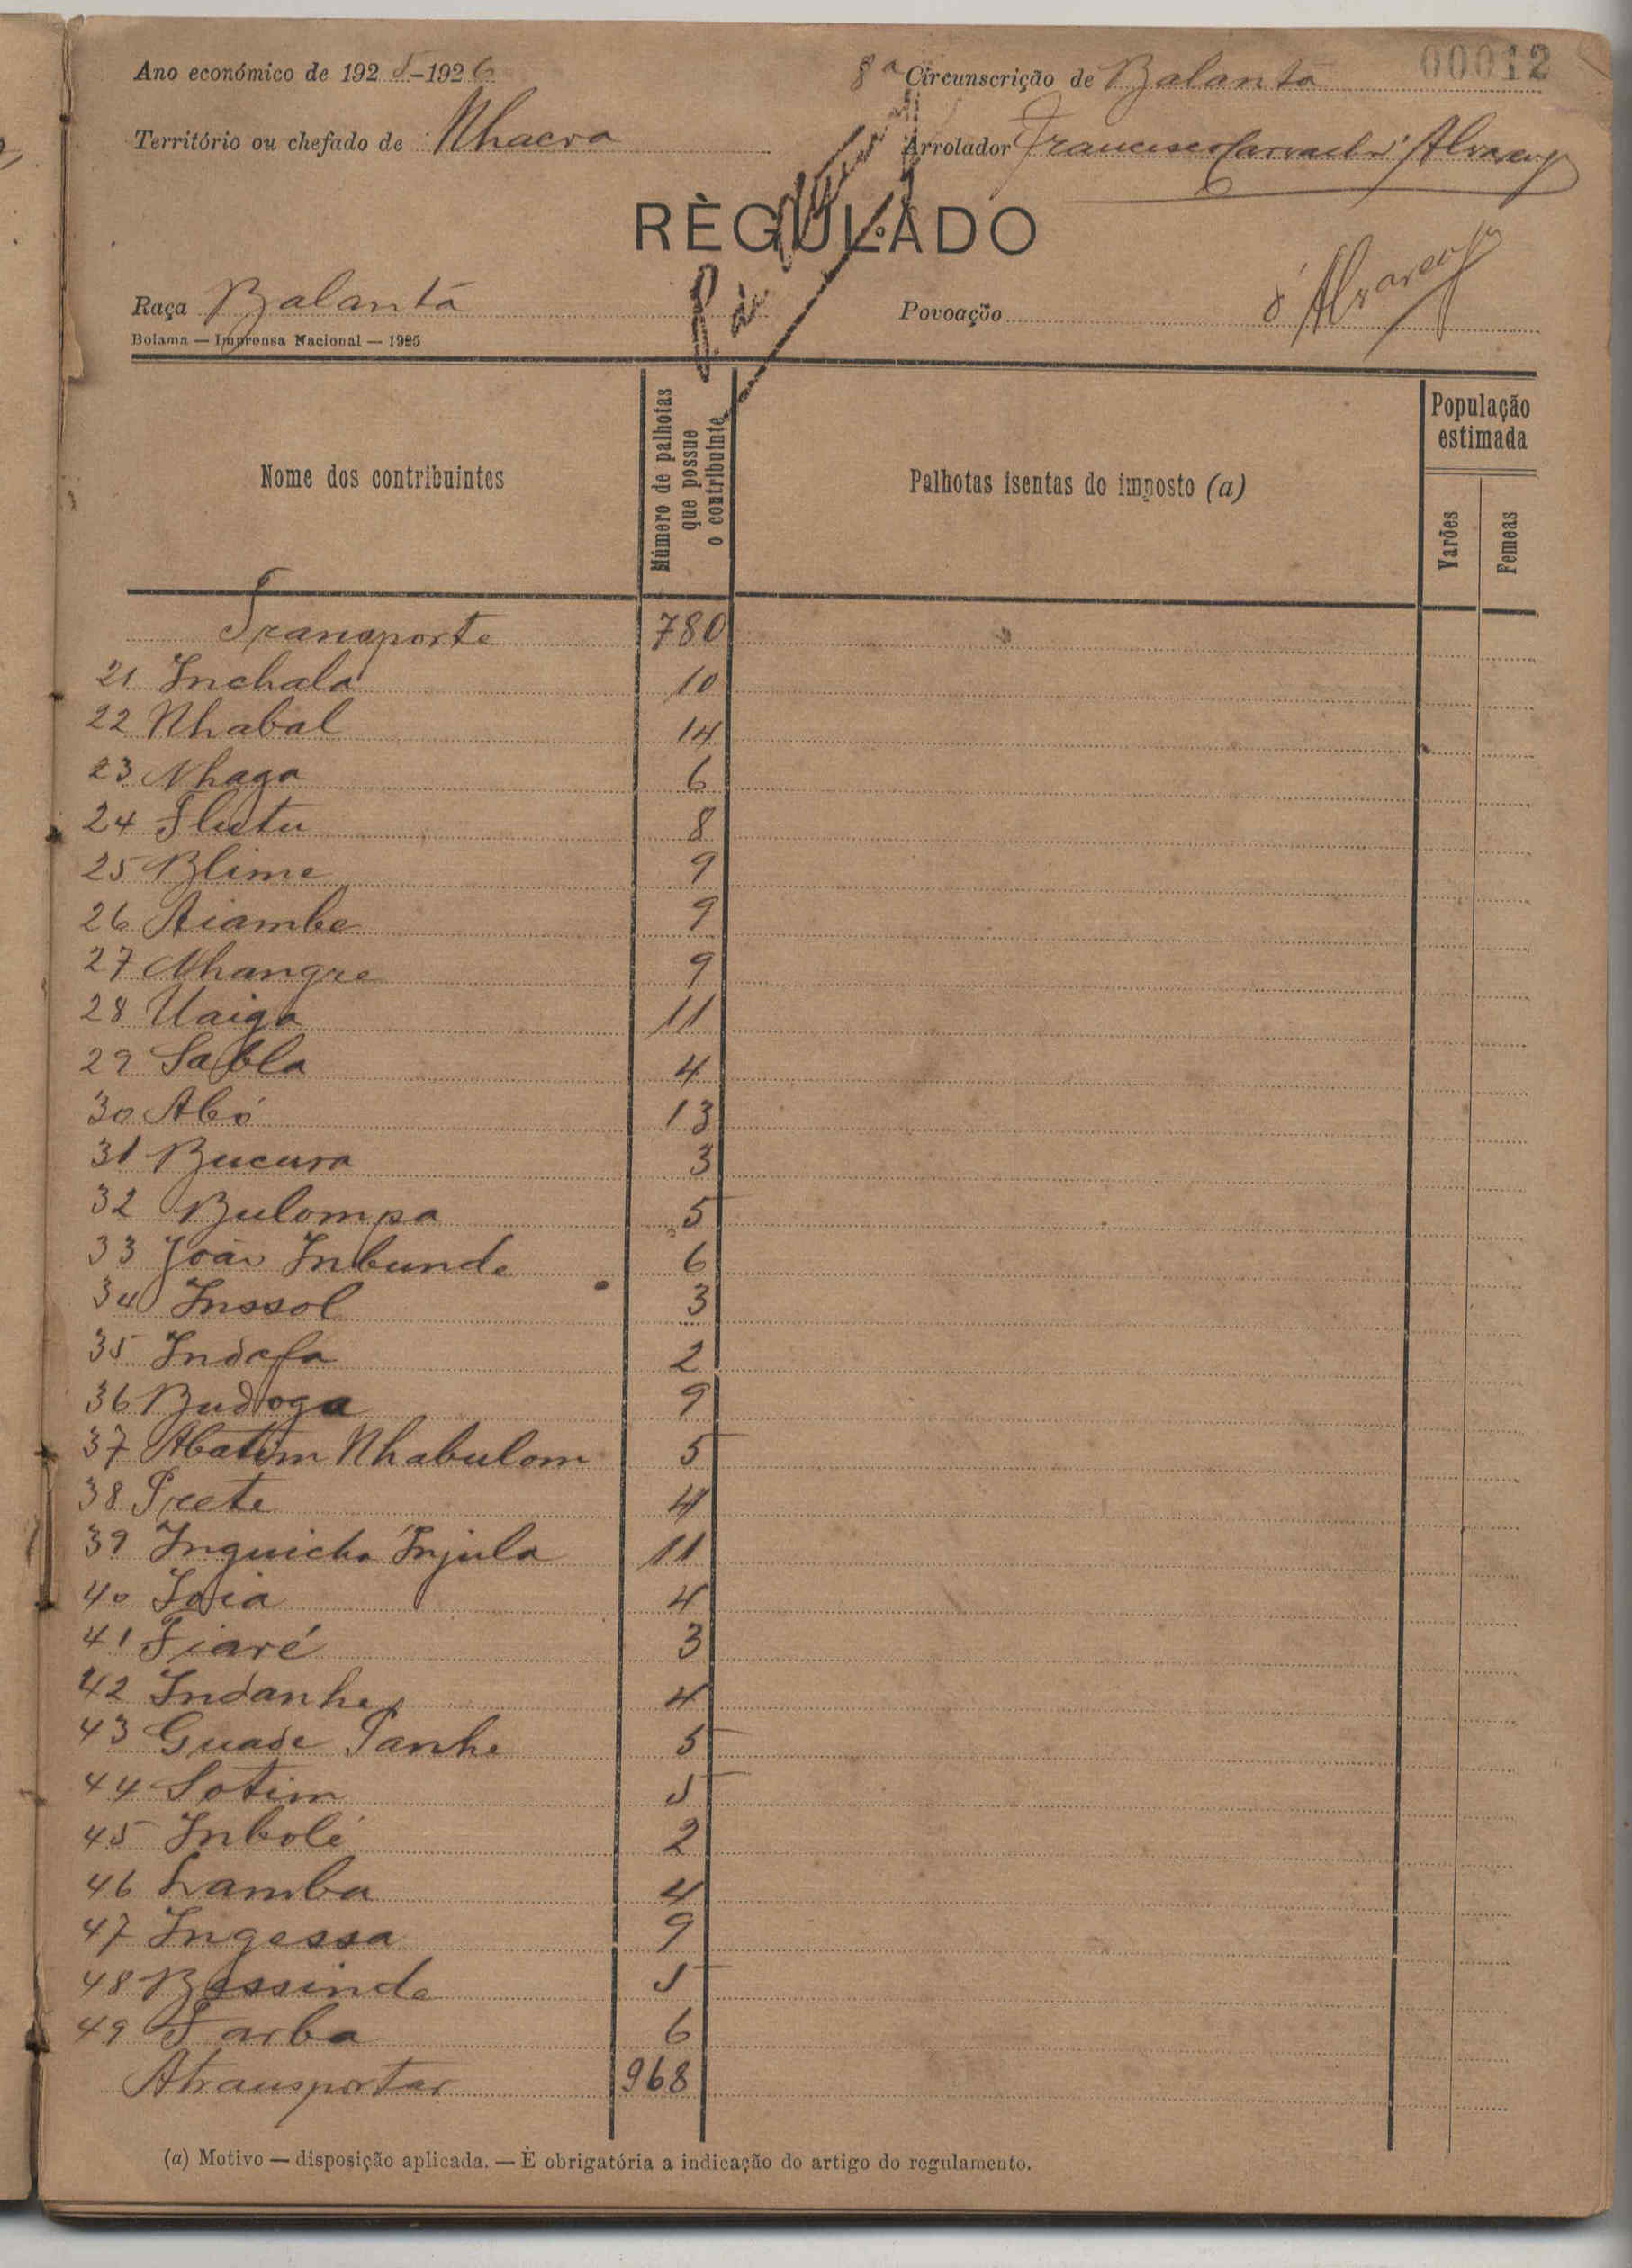 00012
Ano económico de 1925-1926
8ª Circunscrição de Balanta
Território ou chefado de Nhacra
Arrolador Francisco Carvalho d'Alvarenga
REGULADO
Raça Balanta
Povoação d'Alvarenga
Bolama — Imprensa Nacional — 1925
Nome dos contribuintes
Número de palhotas que possue o contribuinte
Palhotas isentas do imposto (a)
População estimada
Varões
Femeas
Transporte 780
21 Inchala 10
22 Nhabal 14
23 Nhaga 6
24 8
25 Blime 9
26 Aiambe 9
27 Nhangre 9
28 Uaiga 11
29 Sabla 4
30 Abó 13
31 Bucura 3
32 Bulompa 5
33 João Inbunde 6
34 Inssol 3
35 Indafa 2
36 Budoga 9
37 Abatim Nhabulom 5
38 4
39 Inguicha Injula 11
40 4
41 3
42 Indanhe 4
43 Guade Tanhe 5
44 Sotim 5
45 Inbolé 2
46 Lamba 4
47 Ingessa 9
48 Bessinde 5
49 Tarba 6
A transportar 968
(a) Motivo — disposição aplicada. — È obrigatória a indicação do artigo do regulamento.